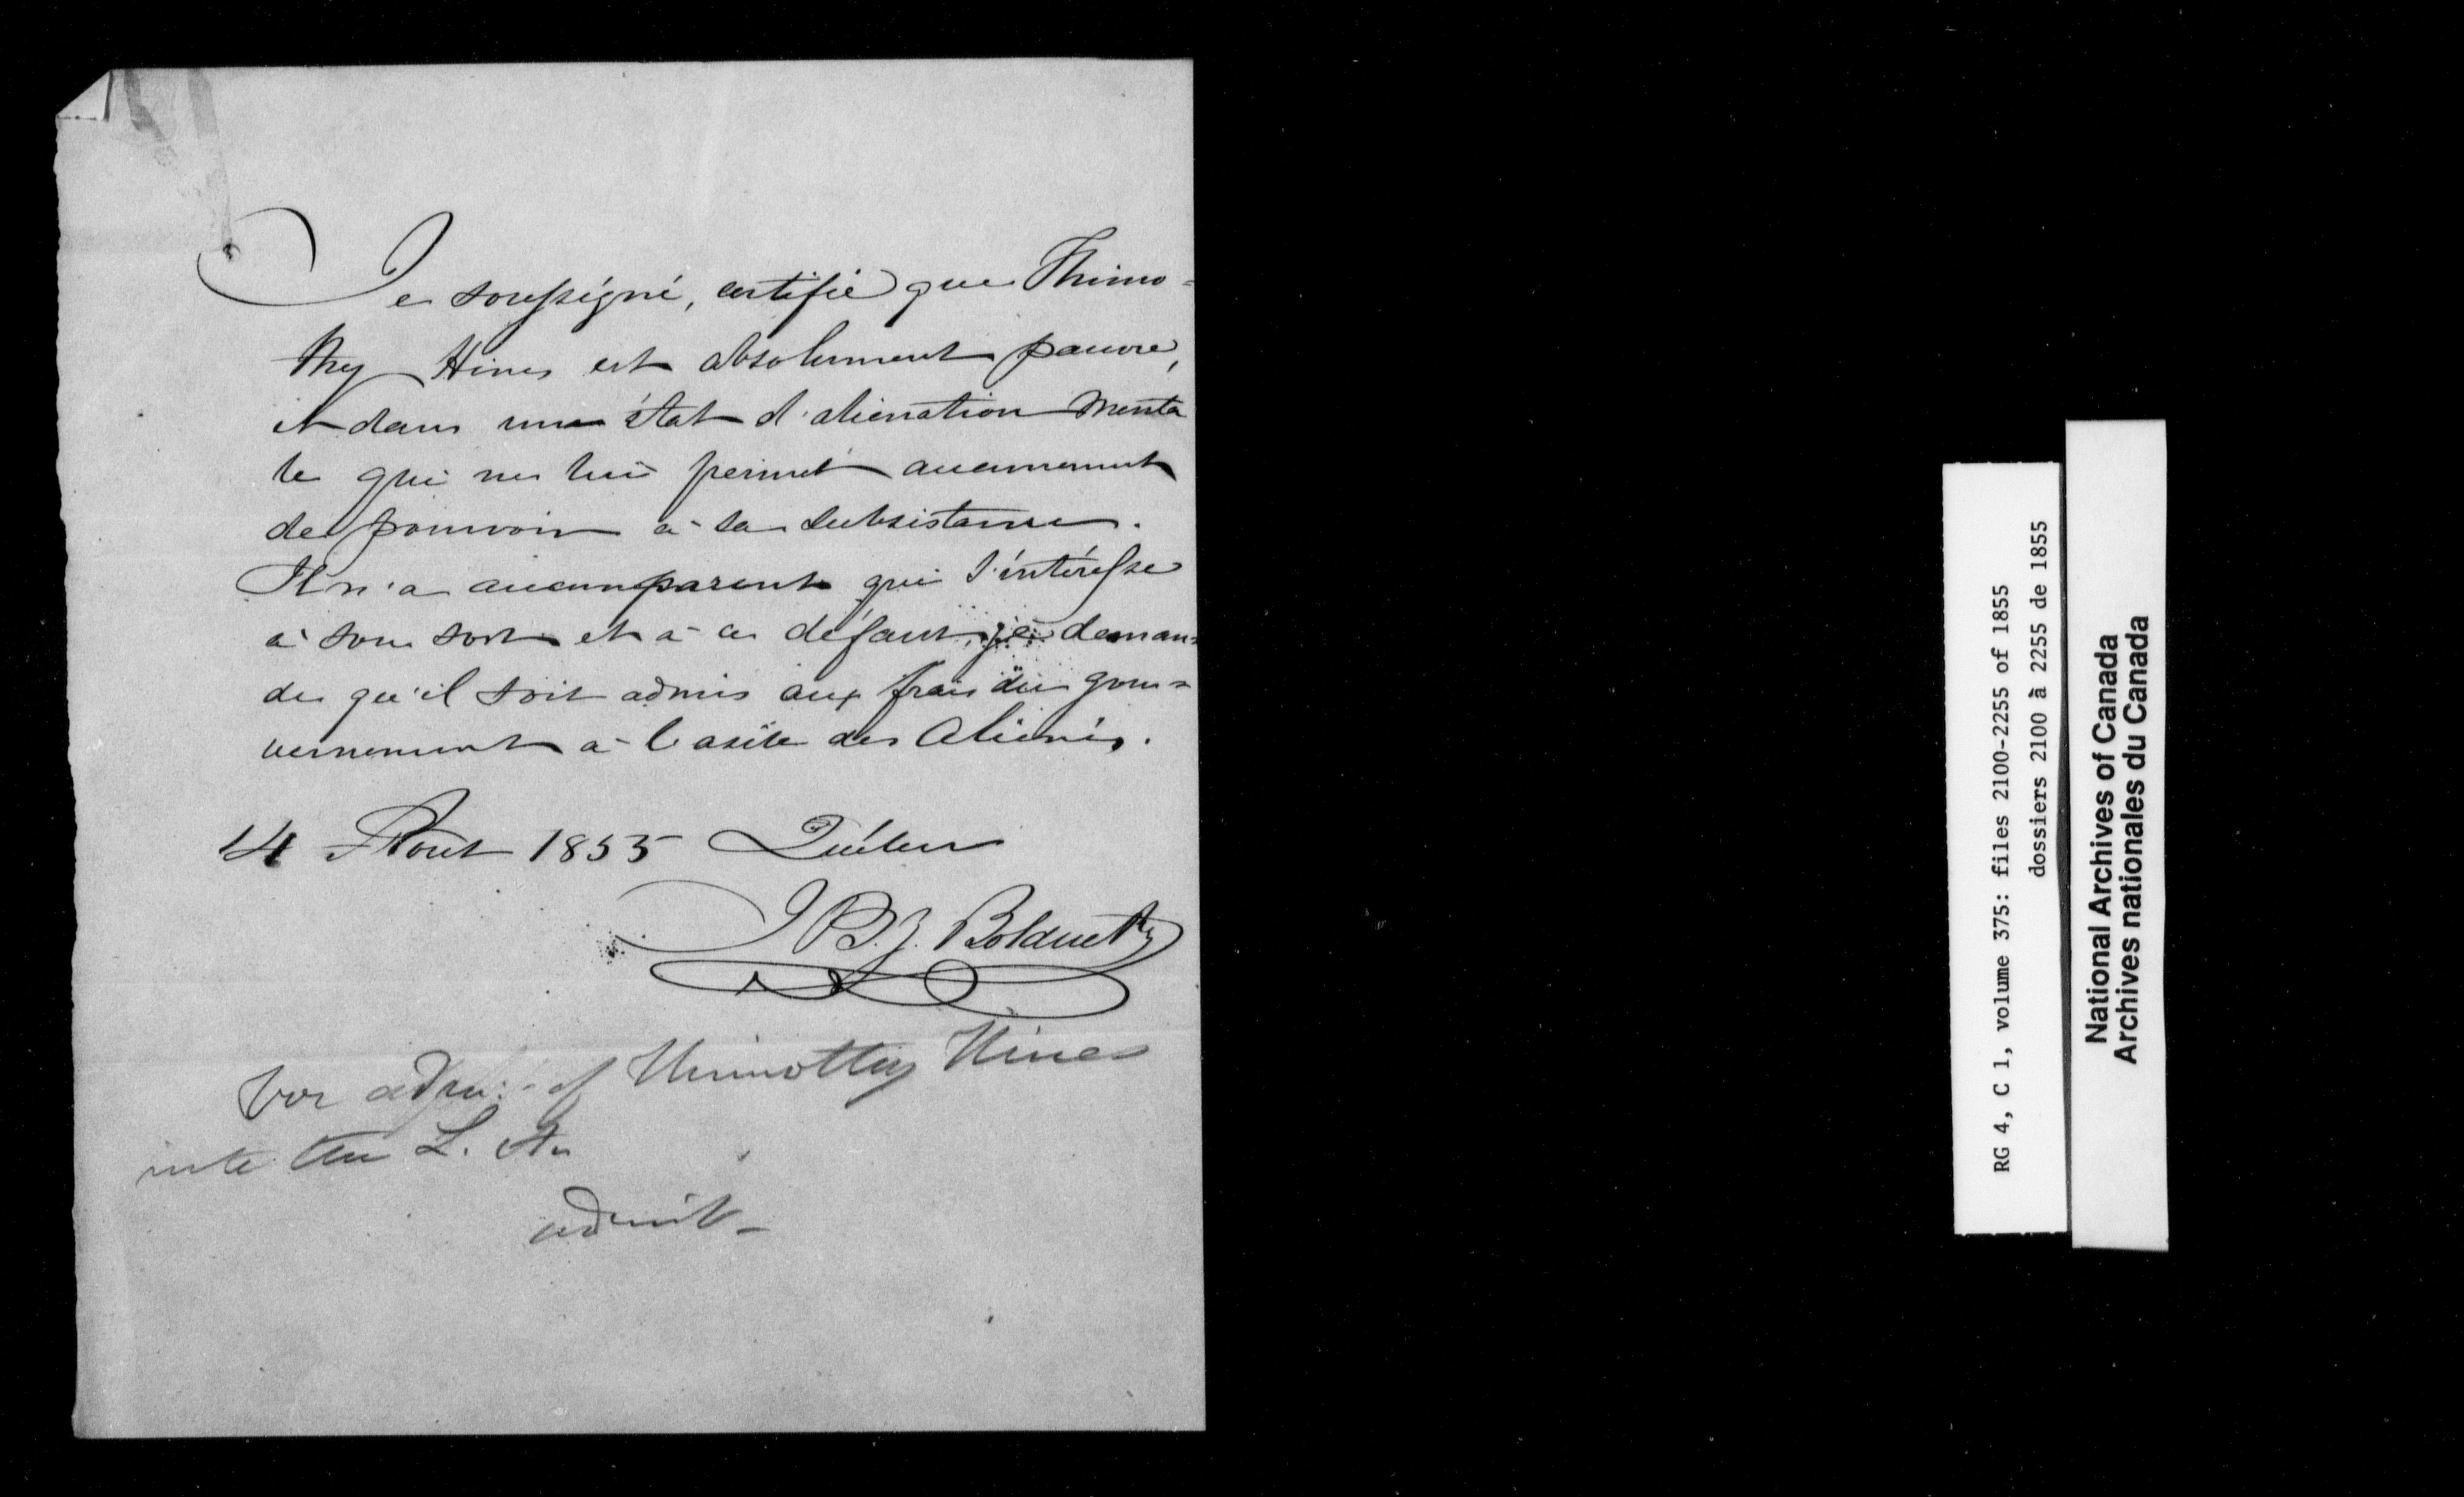 Je soussigné, certifie que Thimo=
thy Hines est absolument pauvre,
et dans une état d'aliénation menta
le qui ne lui permet aucunement
de pourvoir à sa subsistance.
Il n'a aucun parent qui s'intéresse
à son sort et à ce défaut, je deman=
de qu'il soit admis aux frais du gou=
vernement à l'asile des Aliénés.
14 Août 1855 Québec
J. B. Z. Bolduc Ptre
For adm: of Thimothy Hines
into the L. As
admit
RG 4, C 1, volume 375: files 2100-2255 of 1855
dossiers 2100 à 2255 de 1855
National Archives of Canada
Archives nationales du Canada